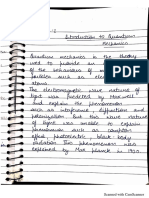 Introduction to Quantum
Mechanics
Quantum mechanics is the theory
used to provide an
of the behaviour of
particles such as
atoms etc.
The electromagnetic wave nature of
light was predicted
and explain the phenomenon
such as interference diffraction and
polarization. But this wave nature
of light was unable to explain
phenomenon such as compton
effect photoelectric black body
radiation. Two phenomenon was
explained by Max planck in 1900
Scanned with CamScanner